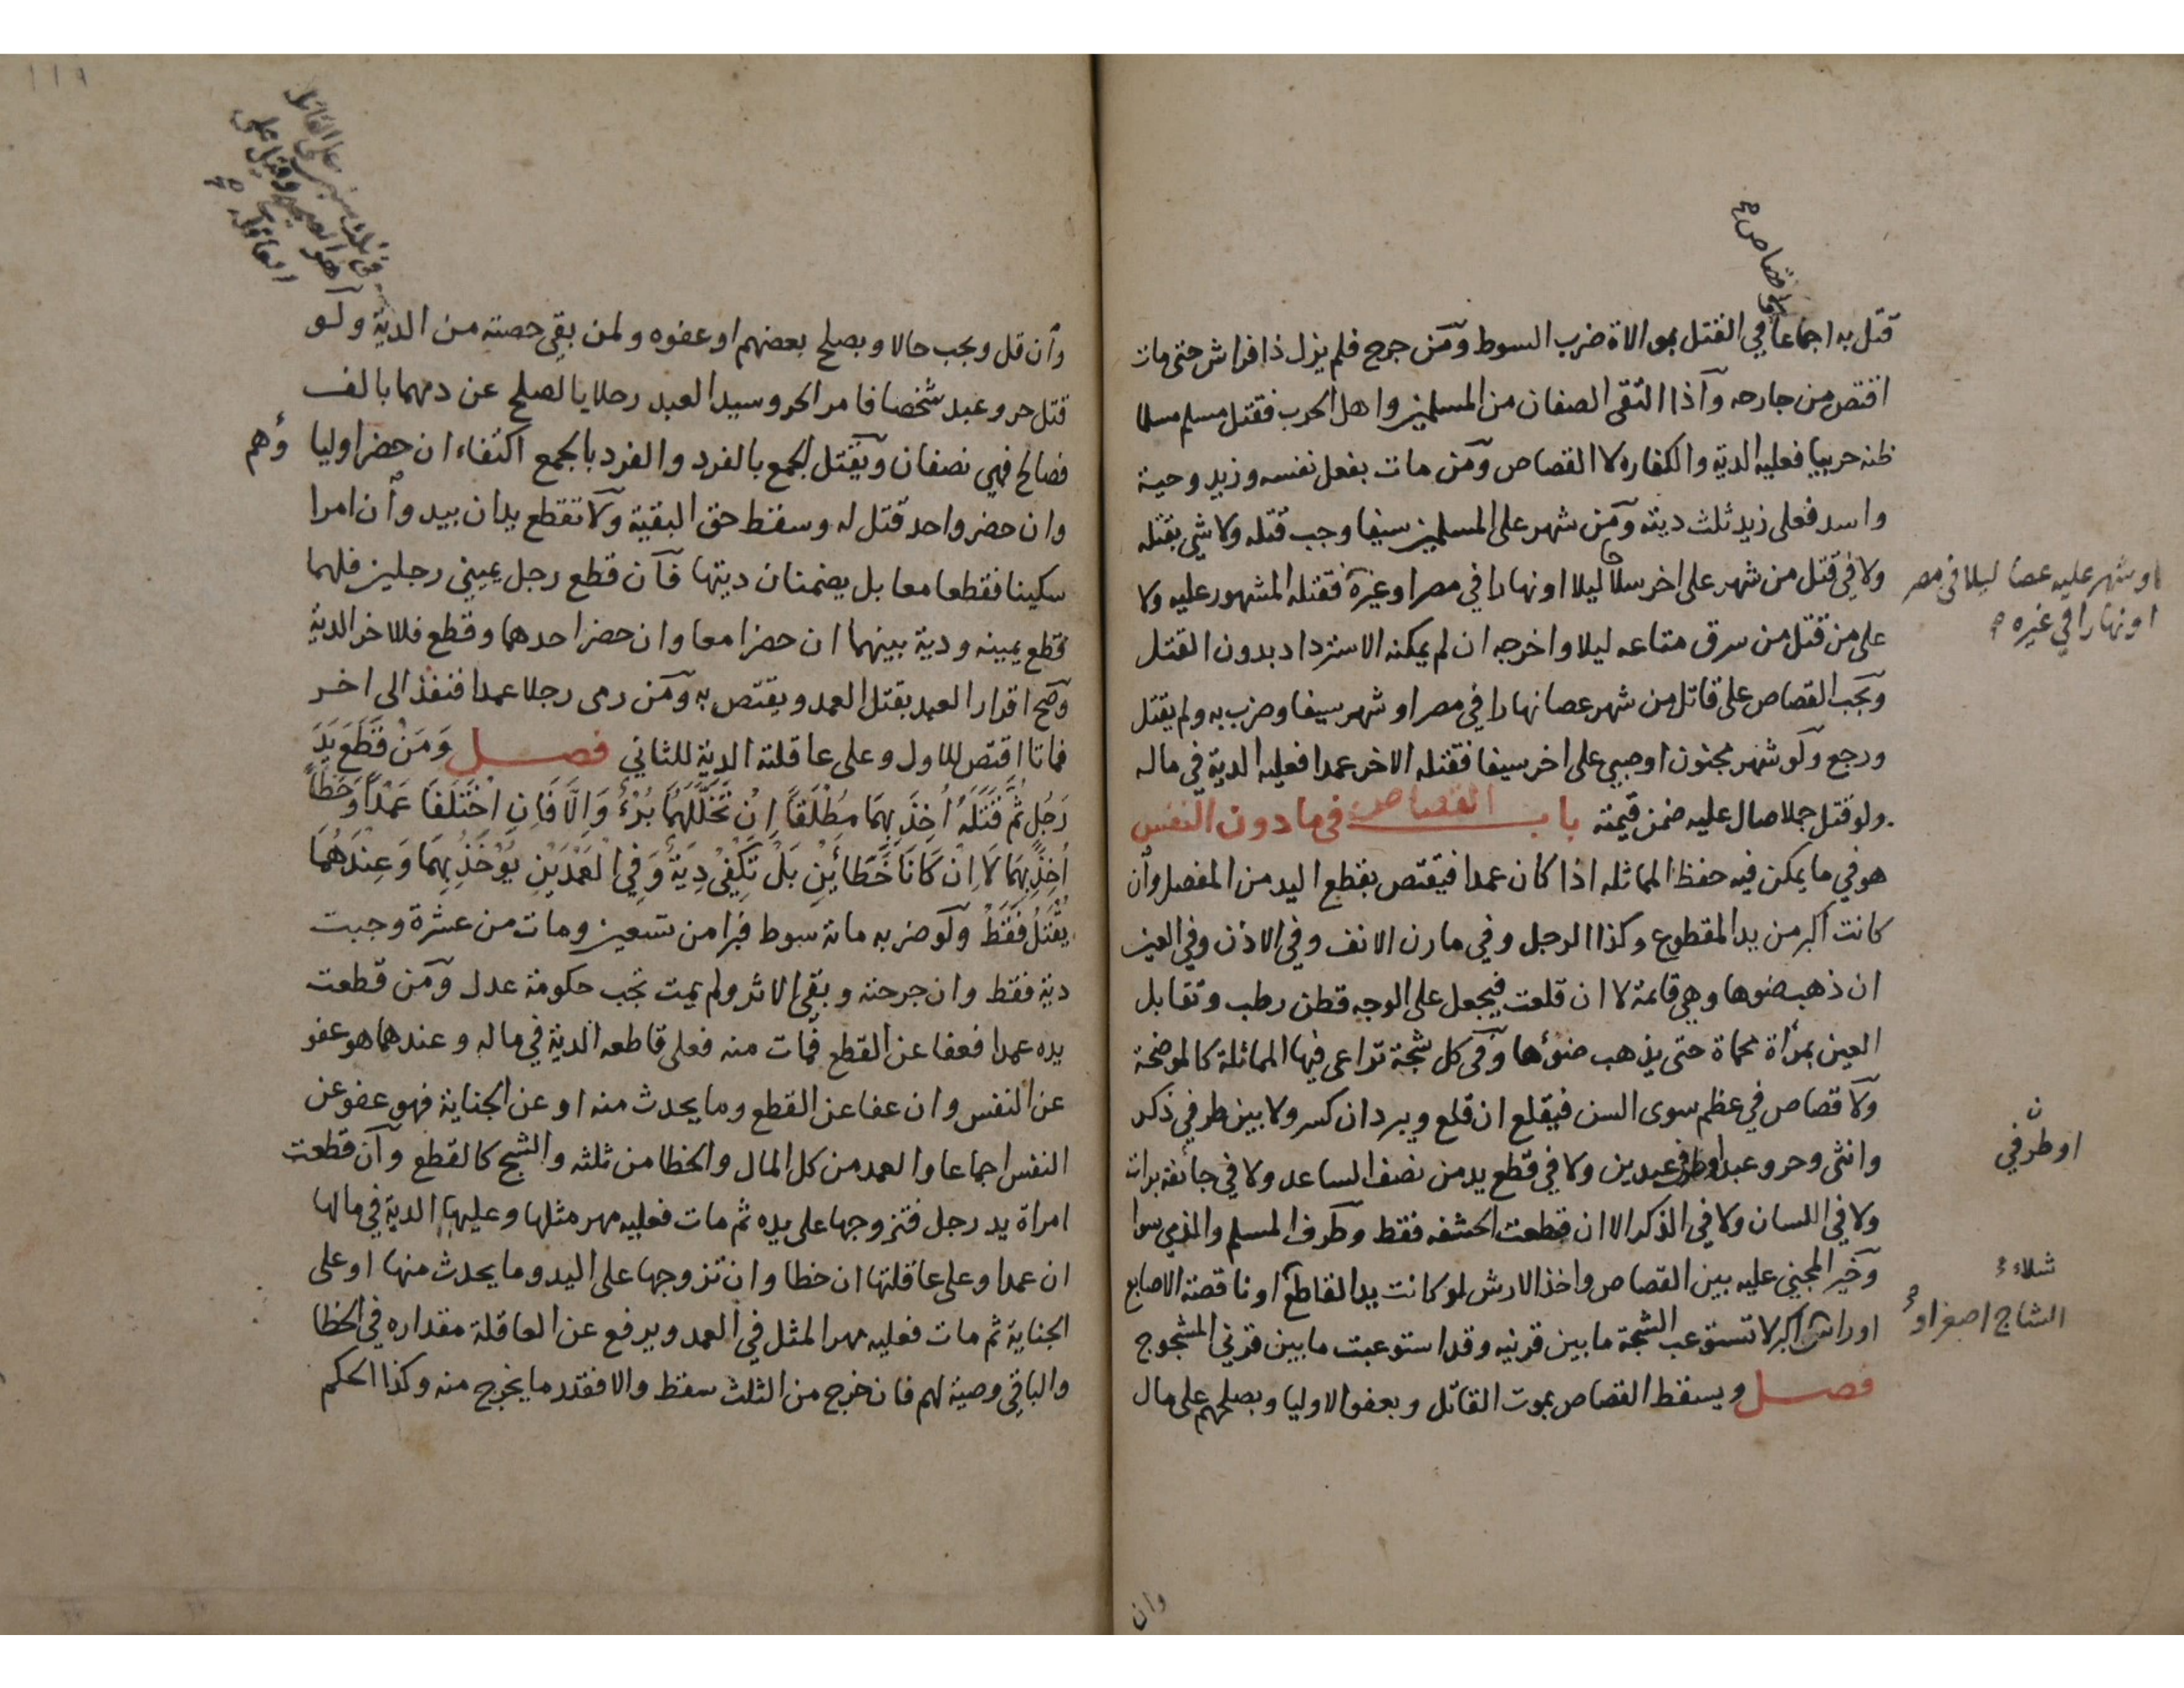 قتل به اجماعا في القتل بموالاة ضرب السوط ومن جرح فلم يزل ذا فراش حتى مات
ولا قصاص
اقتص من جارحه واذا التقى الصفان من المسلمين واهل الحرب فقتل مسلم مسلما
ظنه حربيا فعليه الدية والكفاره لا القصاص ومن مات بفعل نفسه وزيد وحية
واسد فعلى زيد ثلث ديته ومن شهر على المسلمين سيفا وجب قتله ولا شي بقتله
ولا في قتل من شهر على اخر سلاحا ليلا او نهارا في مصر او غيره فقتله المشهور عليه ولا
او شهر عليه عصا ليلا في مصر
او نهارا في غيره
على من قتل من سرق متاعه ليلا واخرجه ان لم يمكنه الاسترداد بدون القتل
ويجب القصاص على قاتل من شهر عصا نهارا في مصر او شهر سيفا وضرب به ولم يقتل
ورجع ولو شهر مجنون او صبي على اخر سيفا فقتله الاخر عمدا فعليه الدية في ماله
ولو قتل جملا صال عليه ضمن قيمته باب القصاص في ما دون النفس
هو في ما يمكن فيه حفظ المماثله اذا كان عمدا فيقتص بقطع اليد من المفصل وان
كانت اكبر من يد المقطوع وكذا الرجل وفي مارن الانف وفي الاذن وفي العين
ان ذهب ضوها وهي قائمة لا ان قلعت فيجعل على الوجه قطن رطب وتقابل
العين بمرأة محماة حتى يذهب ضوءها وفي كل شجة تراعى فيها المماثلة كالموضحة
ولا قصاص في عظم سوى السن فيقلع ان قلع ويبرد ان كسر ولا بين طرفي ذكر
وانثى وحر وعبد او طرفي عبدين ولا في قطع يد من نصف الساعد ولا في جائفة برات
ن
او طرفي
ولا في اللسان ولا في الذكر الا ان قطعت الحشفه فقط وطرف المسلم والذمي سوا
وخير المجني عليه بين القصاص واخذ الارش لو كانت يد القاطع او ناقصة الاصابع
شلاء
او راس اكبر لا تستوعب الشجة ما بين قرنيه وقد استوعبت ما بين قرني المشجوج
الشاج اصغر او
فصل ويسقط القصاص بموت القاتل وبعفو الاوليا وبصلحهم على مال
وان
١١٩
وان قل ويجب حالا وبصلح بعضهم او عفوه ولمن بقي حصته من الدية ولو
قتل حر وعبد شخصا فامر الحر وسيد العبد رجلا بالصلح عن دمهما بالف
فصالح فهي نصفان ويقتل الجمع بالفرد والفرد بالجمع اكتفاء ان حضر اوليا وهم
وان حضر واحد قتل له وسقط حق البقية ولا تقطع يدان بيد وان امرا
سكينا فقطعا معا بل يضمنان ديتها فان قطع رجل يميني رجلين فلهما
قطع يمينه ودية بينهما ان حضرا معا وان حضر احدهما وقطع فللاخر الدية
وصح اقرار العبد بقتل العمد ويقتص به ومن رمى رجلا عمدا فنفذ الى اخر
فماتا اقتص للاول وعلى عاقلته الدية للثاني فصل وَمَنْ قَطَعَ يَدَ
رَجُلٍ ثُمَّ قَتَلَهُ أُخِذَ بِهِمَا مُطْلَقًا اِنْ تَخَلَّلَهُمَا بُرْءٌ وَاِلَّا فَاِنِ اخْتَلَفَا عَمْدًا وَخَطَأً
أُخِذَ بِهِمَا لَا اِنْ كَانَا خَطَائَيْنِ بَلْ تَكْفِي دِيَةٌ وَفِي الْعَمْدَيْنِ يُؤْخَذُ بِهِمَا وَعِنْدَهُمَا
يُقْتَلُ فَقَطْ ولو ضربه مائة سوط فبرا من تسعين ومات من عشرة وجبت
دية فقط وان جرحته وبقي الاثر ولم يمت تجب حكومة عدل ومن قطعت
يده عمدا فعفا عن القطع فمات منه فعلى قاطعه الدية في ماله وعندهما هو عفو
عن النفس وان عفا عن القطع وما يحدث منه او عن الجناية فهو عفو عن
النفس اجماعا والعمد من كل المال والخطا من ثلثه والشج كالقطع وان قطعت
امراة يد رجل فتزوجها على يده ثم مات فعليه مهر مثلها وعليها الدية في مالها
ان عمدا وعلى عاقلتها ان خطا وان تزوجها على اليد وما يحدث منها او على
الجناية ثم مات فعليه مهر المثل في العمد ويرفع عن العاقلة مقداره في الخطا
والباقي وصية لهم فان خرج من الثلث سقط والا فقدر ما يخرج منه وكذا الحكم